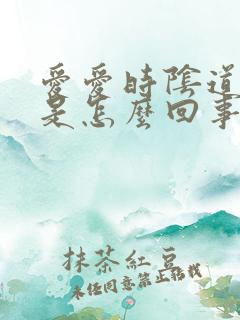 愛愛時陰道
是怎麼回事
抹茶紅豆
未經同意禁止轉載